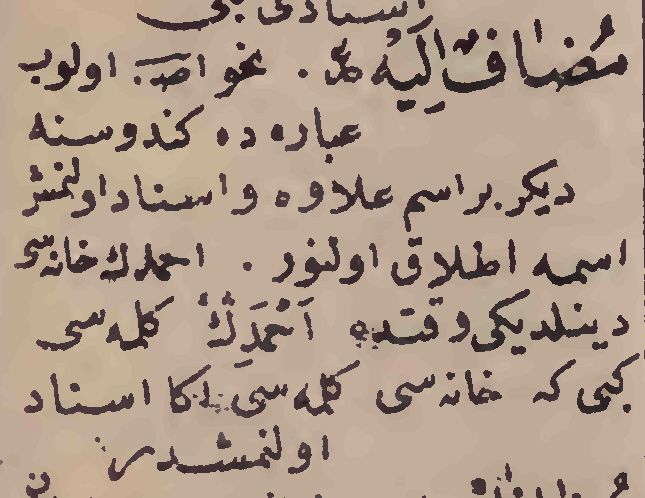 اسنادی کبی
مُضافٌ اِلَیْه . نحو اولوب
عباره ده کندوسنه
دیکر بر اسم علاوه و اسناد اولنمش
اسمه اطلاق اولنور . احمدك خانه سی
دینلدیکی وقتده اَحْمَدَكْ کلمه سی
کبی که خانه سی کلمه سی اکا اسناد
اولنمشدر